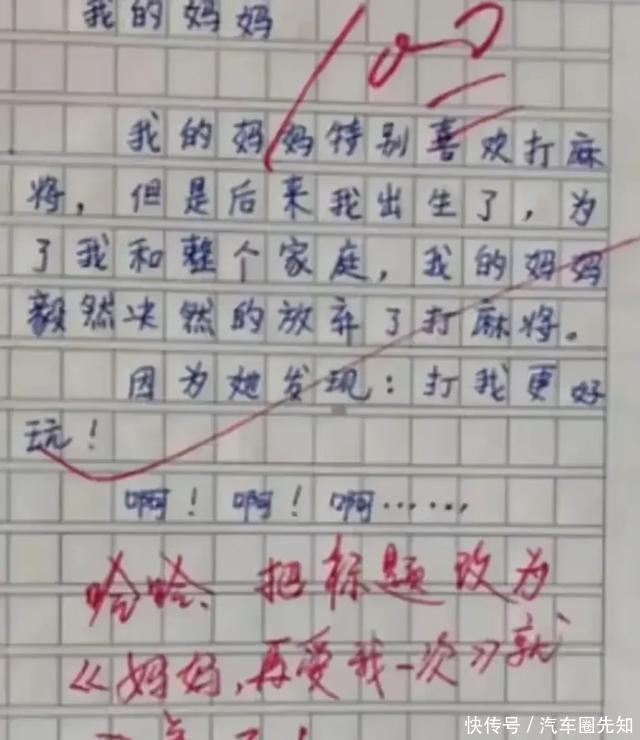 我的妈妈
100
我的妈妈特别喜欢打麻
将，但是后来我出生了，为
了我和整个家庭，我的妈妈
毅然决然的放弃了打麻将。
因为她发现：打我更好
玩！
啊！啊！啊……
哈哈、把标题改为
《妈妈,再爱我一次》就
快传号/汽车圈先知